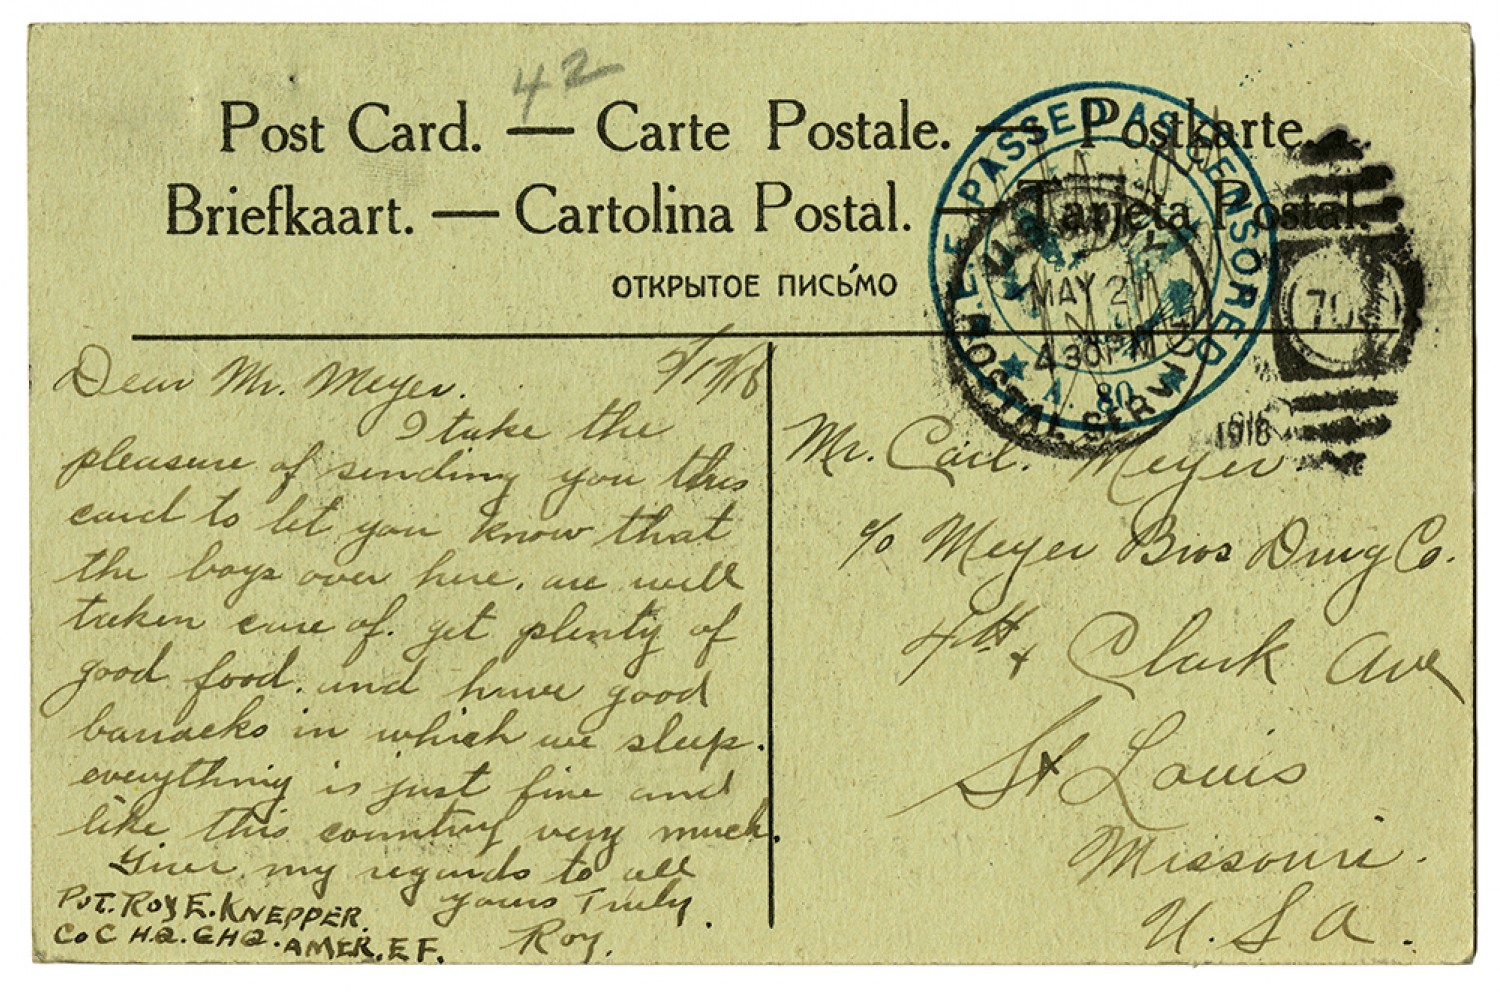 42
Post Card. — Carte Postale. — Postkarte.
Briefkaart. — Cartolina Postal. — Tarjeta Postal.
ОТКРЫТОЕ ПИСЬМО
A.E.F. PASSED AS CENSORED
A. 80
MAY 21
430PM
POSTAL SERVICE
1918
Dear Mr. Meyer.
I take the
pleasure of sending you this
card to let you know that
the boys over here. are well
taken care of. get plenty of
good food. and have good
barracks in which we sleep.
everything is just fine and
like this country very much.
Give my regards to all
yours Truly.
Roy.
PVT. ROY E. KNEPPER.
Co C H.Q. GHQ. AMER. E F.
Mr. Carl. Meyer.
c/o Meyer Bros Drug Co.
4th + Clark Ave
St Louis
Missouri.
U. S A.